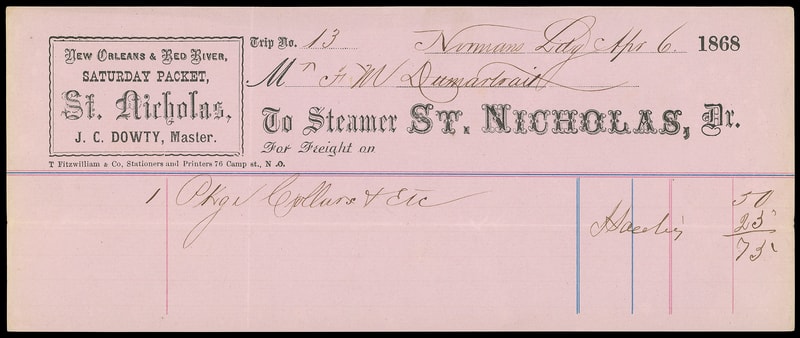 New Orleans & Red River,
SATURDAY PACKET,
St. Nicholas,
J. C. DOWTY, Master.
T Fitzwilliam & Co, Stationers and Printers 76 Camp st., N .O.
Trip No. 13 Normans Ldg Apr 6. 1868
Mr F M Dumartrait
To Steamer ST. NICHOLAS, Dr.
For Freight on
1 Pkge Collars & Etc 50
25
75